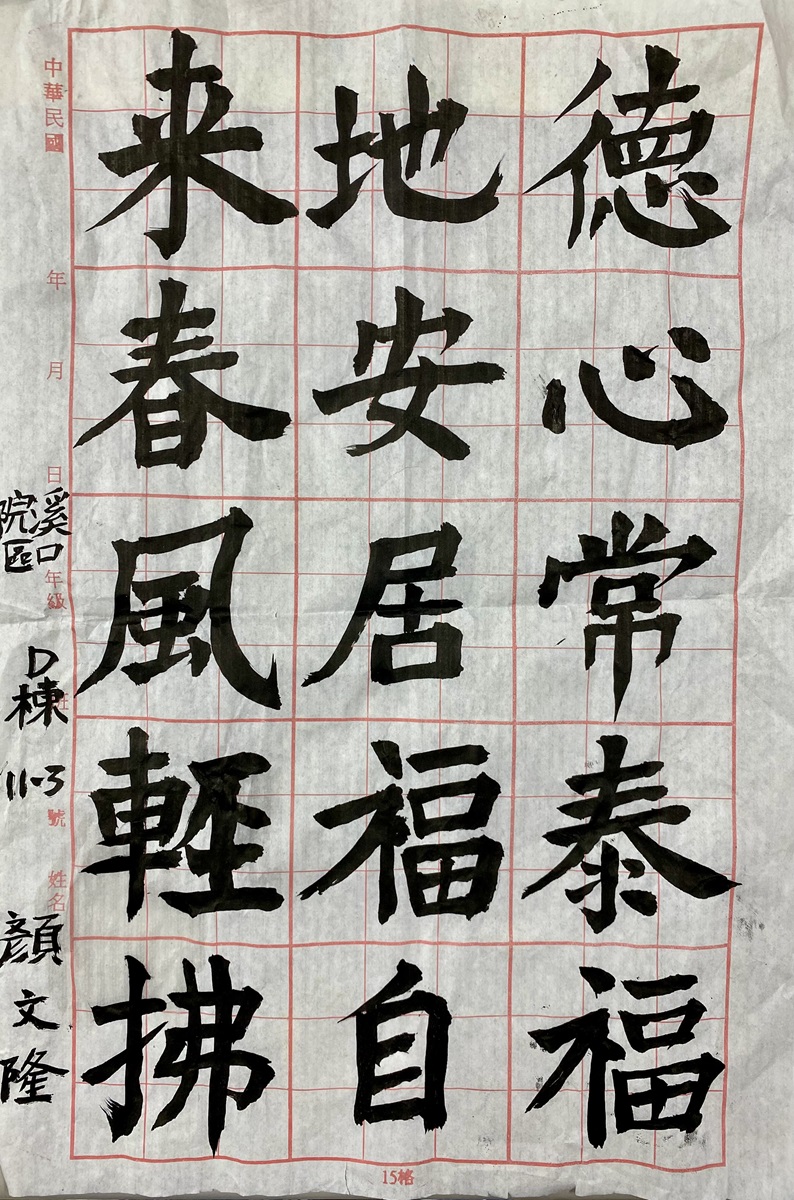 德心常泰福
地安居福自
来春風輕拂
中華民國 年 月 日
年級 班 號 姓名
溪口
院區
D棟
11-3
顏文隆
15格